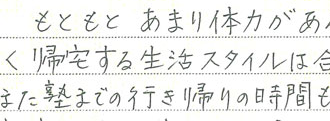 もともと あまり体力があ
く帰宅する生活スタイルは合
また塾までの行き帰りの時間も